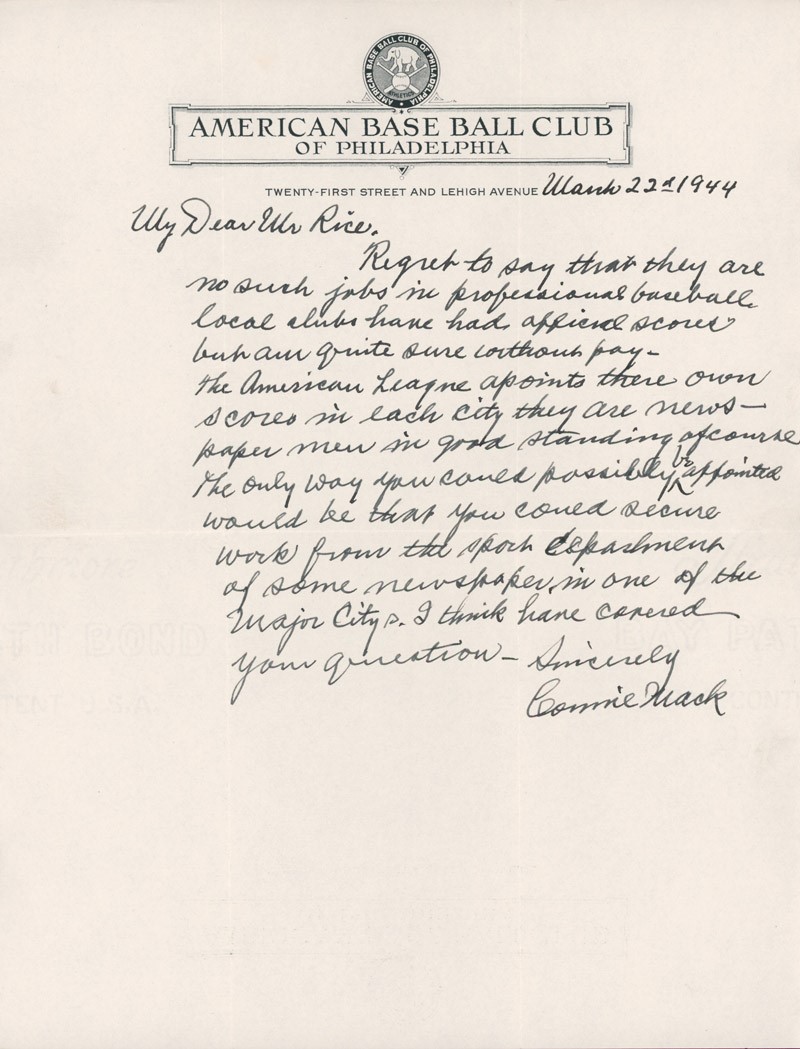 AMERICAN BASE BALL CLUB OF PHILADELPHIA
ATHLETICS
AMERICAN BASE BALL CLUB
OF PHILADELPHIA
TWENTY-FIRST STREET AND LEHIGH AVENUE March 22nd 1944
My Dear Mr Rice.
Regret to say that they are
no such jobs in professional baseball
local clubs have had official scores
but am quite sure without pay-
the American League apoints there own
scores in each city they are news-
paper men in good standing ofcourse
the only way you could possibly be appointed
would be that you could secure
work from the sport department
of some newspaper in one of the
Major Citys. I think have covered
your question - Sincerely
Connie Mack